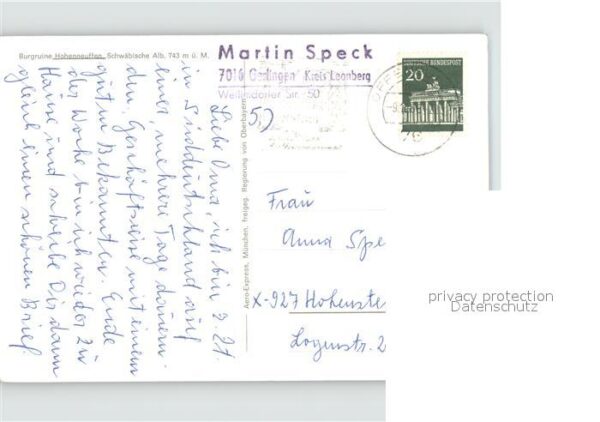 Burgruine Hohenneuffen, Schwäbische Alb, 743 m ü. M.
Martin Speck
7016 Gerlingen Kreis Leonberg
Weilimdorfer Str. 50
DEUTSCHE BUNDESPOST
20
Liebe Oma, ich bin z. Zt.
in Süddeutschland auf
einer, mehrere Tage dauern-
den, Geschäftsreise mit einem
guten Bekannten. Ende
der Woche bin ich wieder zu
Hause und schreibe Dir dann
gleich einen schönen Brief.
Aero-Express, München, freigeg. Regierung von Oberbayern
Frau
Anna Spe
X-927 Hohenste
Logenstr. 2
privacy protection
Datenschutz